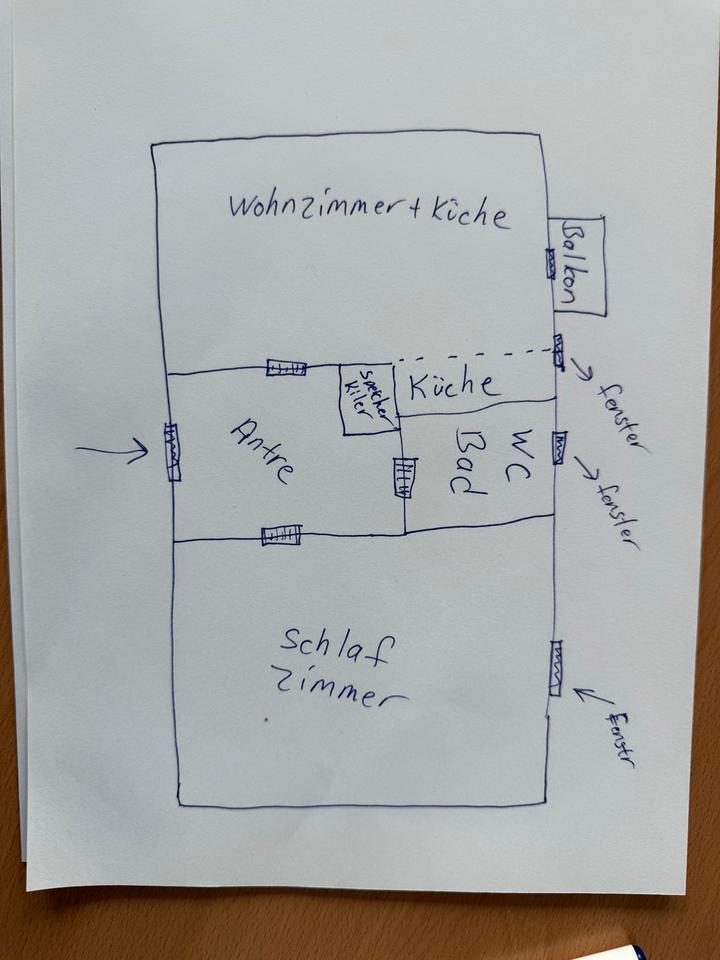 Wohnzimmer + Küche
Balkon
Speicher
Kiler
Küche
fenster
Antre
WC
Bad
fenster
Schlaf
Zimmer
Fenstr